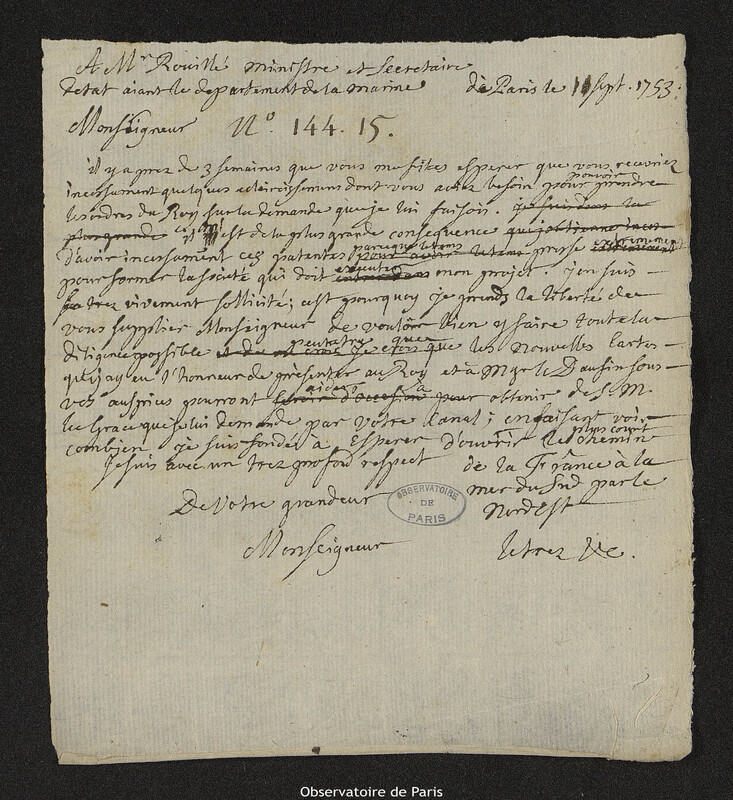 A Mr. Rouillé ministre et Secretaire
detat aiant le departement de la marine de Paris le 11 Sept. 1753.
Monseigneur No. 144. 15.
il y a prez de 3 semaines que vous me fites esperer que vous recevriez
incessament quelques eclaircissemens dont vous aviez besoin pour pouvoir prendre
les ordres du Roy sur la demande que je lui faisois. je suis dans la
plus grande il m'est de la plus grande consequence que j'obtienne inces
d'avoir incessament ces patentes parceque le tems pour avoir le tems presse extremement
pour former la societé qui doit executer mon projet. j'en suis
trez vivement sollicité; c'est pourquoy je prends la liberté de
vous supplier Monseigneur de vouloir bien y faire toute la
diligence possible peutetre que les Nouvelles Cartes
que j'ay eu l'honneur de presenter au Roy et à Mgr le Daufin sous
vos auspices pourront aider à servir d'occasion pour obtenir de S. M.
la Grace que je lui demande par votre Canal; en faisant voir
combien je suis fondé à Esperer d'ouvrir le plus court chemin
de la France à la
mer du Sud par le
Nord Est
Je suis avec un trez profond respect
De Votre grandeur
Monseigneur letrez &c.
OBSERVATOIRE
DE
PARIS
Observatoire de Paris